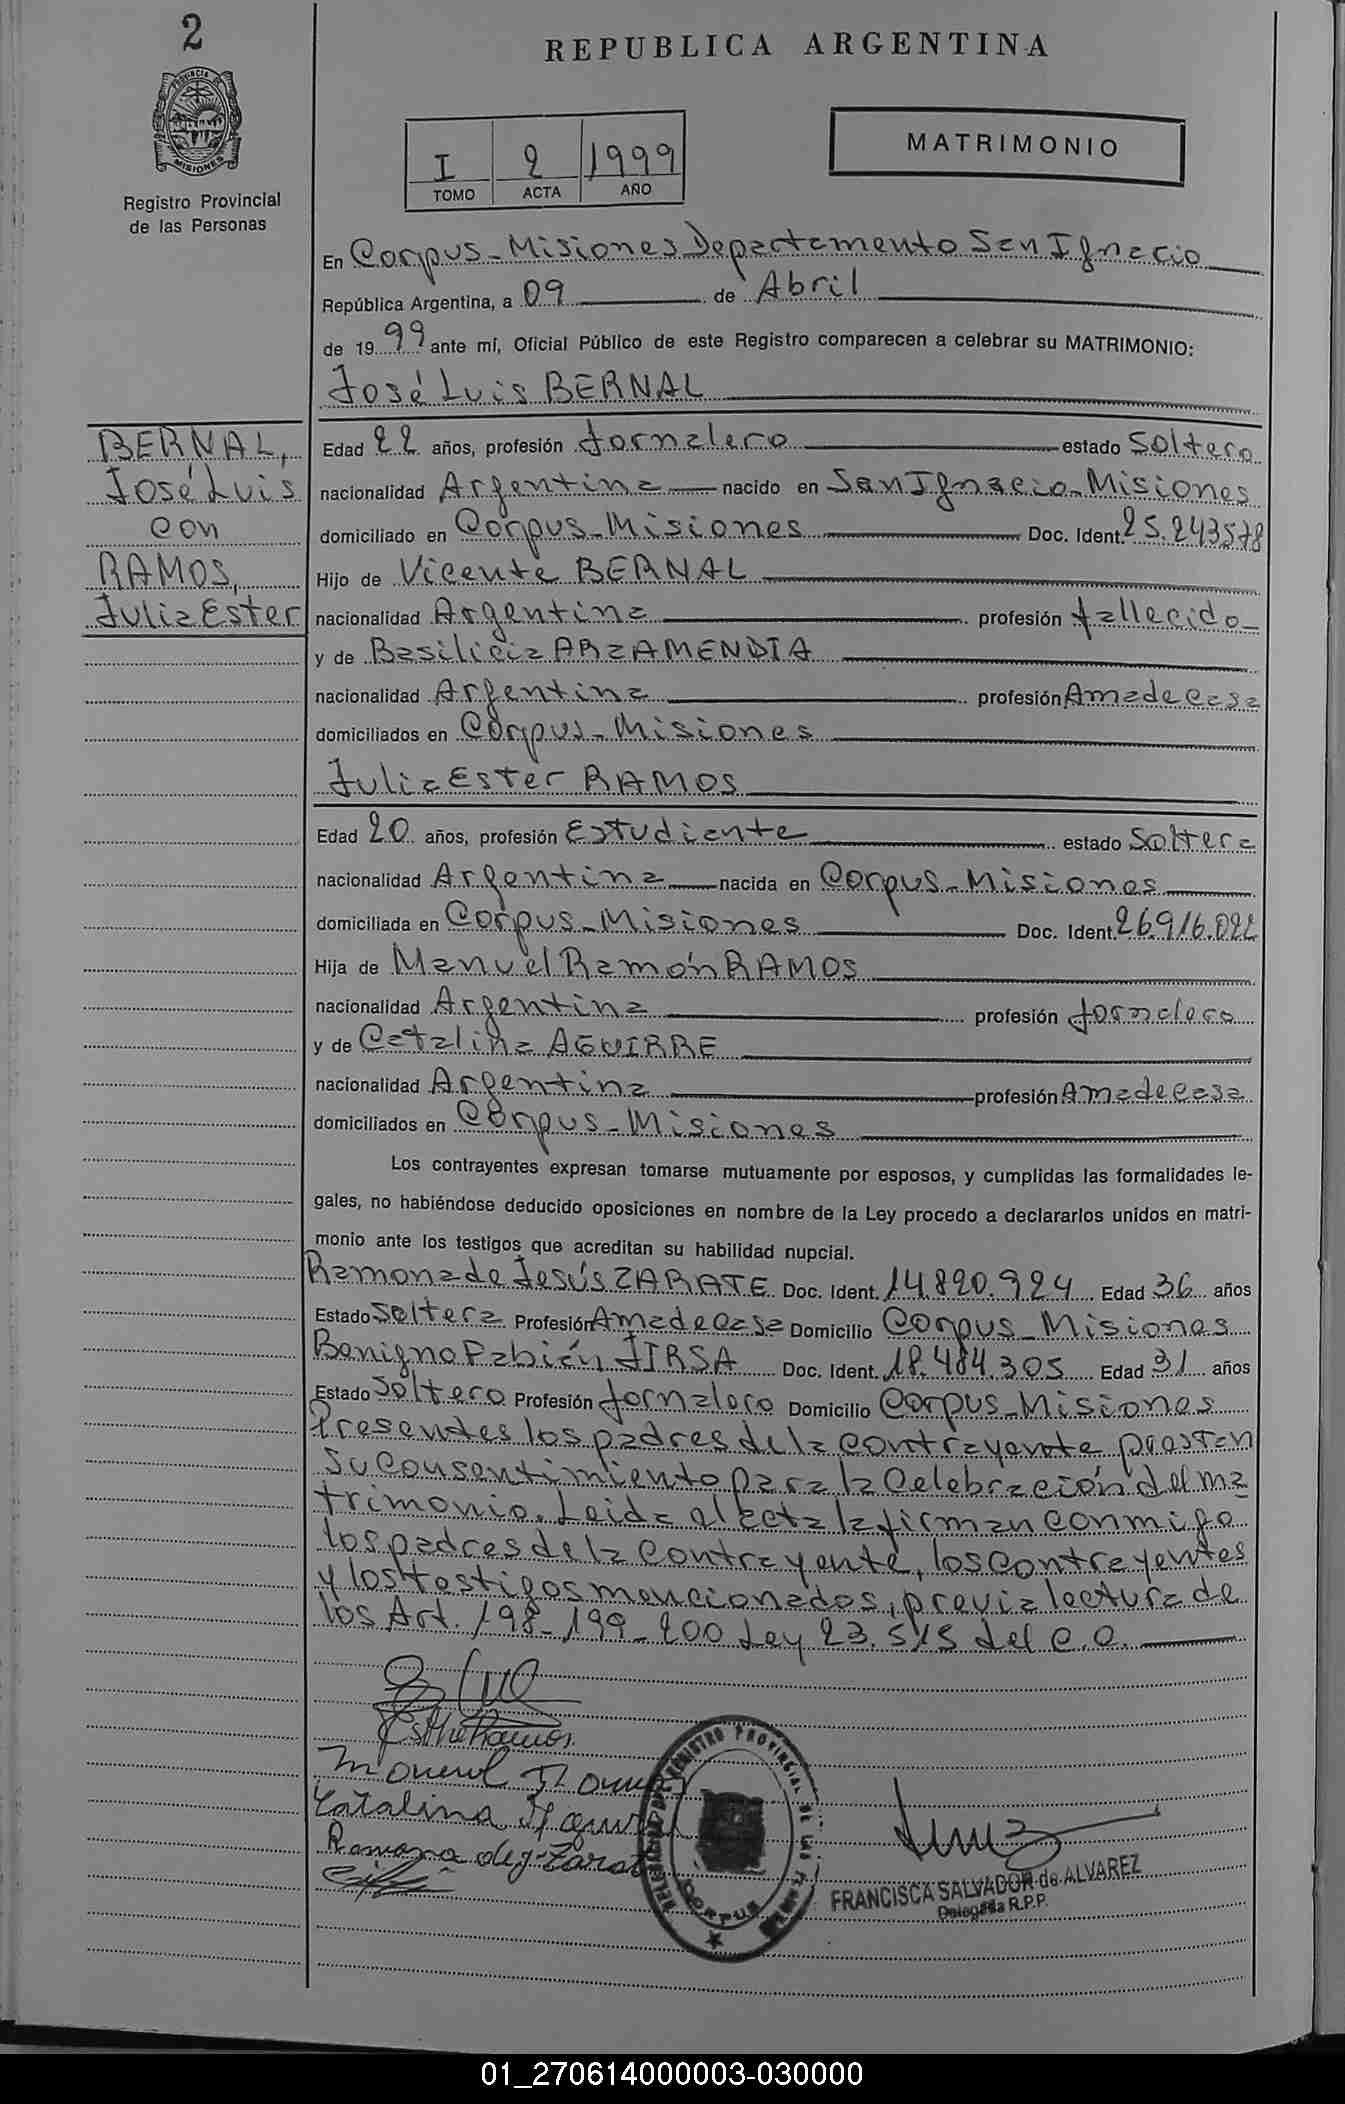 2
REPUBLICA ARGENTINA
PROVINCIA DE
MISIONES
Registro Provincial
de las Personas
I 2 1999
TOMO ACTA AÑO
MATRIMONIO
En Corpus - Misiones Departamento San Ignacio
República Argentina, a 09 de Abril
de 1999 ante mí, Oficial Público de este Registro comparecen a celebrar su MATRIMONIO:
José Luis BERNAL
BERNAL,
José Luis
con
RAMOS,
Julia Ester
Edad 22 años, profesión Jornalero estado Soltero
nacionalidad Argentina nacido en San Ignacio - Misiones
domiciliado en Corpus - Misiones Doc. Ident. 25.243578
Hijo de Vicente BERNAL
nacionalidad Argentina profesión fallecido
y de Basilicia ARZAMENDIA
nacionalidad Argentina profesión Ama de casa
domiciliados en Corpus - Misiones
Julia Ester RAMOS
Edad 20 años, profesión Estudiante estado Soltera
nacionalidad Argentina nacida en Corpus - Misiones
domiciliada en Corpus - Misiones Doc. Ident. 26.916.022
Hija de Manuel Ramón RAMOS
nacionalidad Argentina profesión Jornalero
y de Catalina AGUIRRE
nacionalidad Argentina profesión Ama de casa
domiciliados en Corpus - Misiones
Los contrayentes expresan tomarse mutuamente por esposos, y cumplidas las formalidades le-
gales, no habiéndose deducido oposiciones en nombre de la Ley procedo a declararlos unidos en matri-
monio ante los testigos que acreditan su habilidad nupcial.
Ramona de Jesús ZARATE Doc. Ident. 14.820.924 Edad 36 años
Estado Soltera Profesión Ama de casa Domicilio Corpus - Misiones
Benigno Fabián JIRSA Doc. Ident. 18.484.305 Edad 31 años
Estado Soltero Profesión Jornalero Domicilio Corpus - Misiones
Presentes los padres de la contrayente prestan
su consentimiento para la celebración del ma
trimonio. Leida el acta la firman conmigo
los padres de la contrayente, los contrayentes
y los testigos mencionados, previa lectura de
los Art. 198-199-200 Ley 23.515 del C.C.
Esther Ramos
Manuel Ramos
Catalina Aguirre
Ramona de J. Zarate
REGISTRO PROVINCIAL DE LAS
CORPUS
FRANCISCA SALVADOR de ALVAREZ
Delegada R.P.P.
01_270614000003-030000